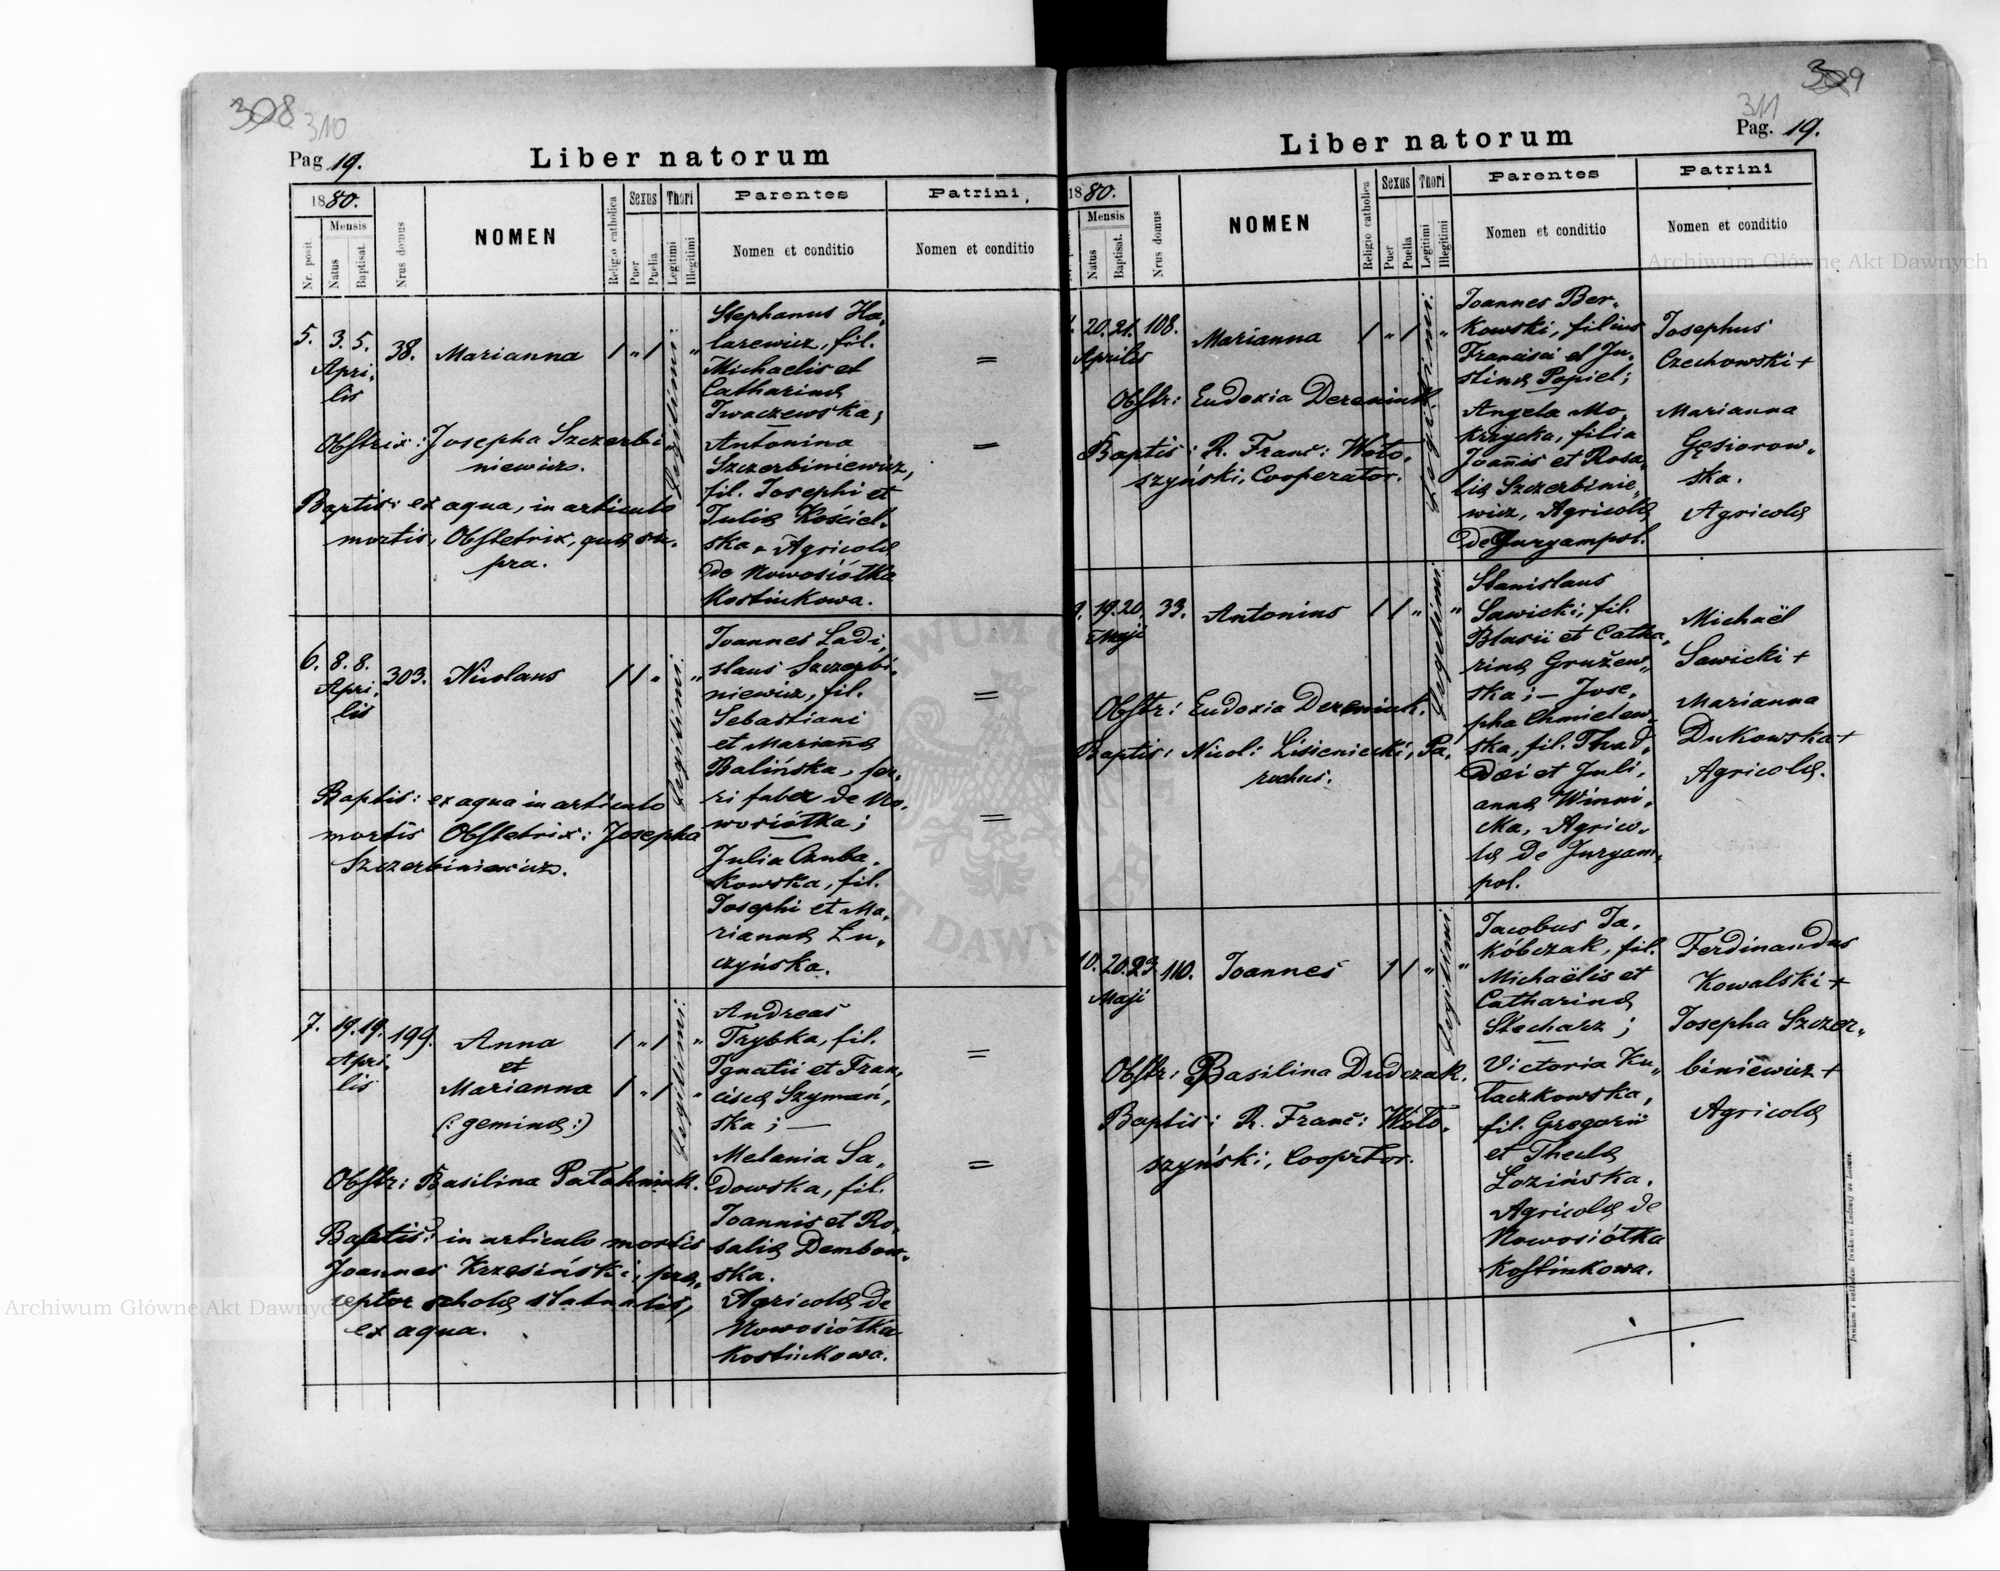 308 310
Pag 19.
Liber natorum
1880.
Nr. posit.
Mensis
Natus
Baptisat.
Nrus domus
NOMEN
Religio catholica
Sexus
Puer
Puella
Thori
Legitimi
Illegitimi
Parentes
Nomen et conditio
Patrini,
Nomen et conditio
5. 3. 5. 38. Marianna / " / "
Apri-
lis
Legitimi:
Obstrix: Josepha Szczerbi
niewicz.
Baptis: ex aqua, in articulo
mortis, Obstetrix, quæ su-
pra.
Stephanus Ha-
larewicz, fil.
Michaelis et
Catharinæ
Iwaczewska;
Antonina
Szczerbiniewicz,
fil. Josephi et
Juliæ Kościel-
ska, Agricolæ
de Nowosiółka
Kostiukowa.
=
=
6. 8. 8. 303. Nicolaus / / " "
Apri-
lis
Legitimi:
Baptis: ex aqua in articulo
mortis Obstetrix: Josepha
Szczerbiniewicz.
Joannes Ladi-
slaus Szczerbi-
niewicz, fil.
Sebastiani
et Mariañæ
Balińska, fer-
ri faber de No-
wosiółka;
Julia Czuba-
kowska, fil.
Josephi et Ma-
riannæ Lu-
czyńska.
=
=
7. 19. 19. 199. Anna / " / "
Apri-
lis
et
Marianna / " / "
(: geminæ :)
Legitimi:
Obstr: Basilina Patahniuk.
Baptis: in articulo mortis
Joannes Krzesiński, præ-
ceptor scholæ statualis,
ex aqua.
Andreas
Trybka, fil.
Ignatii et Fran-
ciscæ Szymań-
ska; —
Melania Sa-
dowska, fil.
Joannis et Ro-
saliæ Dembow-
ska.
Agricolæ de
Nowosiółka
Kostiukowa.
=
=
309
311
Pag. 19.
Liber natorum
1880.
Mensis
Natus
Baptisat.
Nrus domus
NOMEN
Religio catholica
Sexus
Puer
Puella
Thori
Legitimi
Illegitimi
Parentes
Nomen et conditio
Patrini
Nomen et conditio
20. 21. 108. Marianna / " / "
Aprilis
Legitimi:
Obstr: Eudoxia Dereniuk
Baptis: R. Franc: Woło-
szyński, Cooperator.
Joannes Ber-
kowski, filius
Francisci et Ju-
stinæ Popiel;
Angela Mo-
krzycka, filia
Joañis et Rosa-
liæ Szczerbinie-
wicz, Agricolæ
de Juryampol.
Josephus
Czechowski +
Marianna
Gęsiorow-
ska.
Agricolæ
9. 19. 20. 33. Antonius / / " "
Maji
Legitimi:
Obstr: Eudoxia Dereniuk.
Baptis: Nicol: Lisieniecki, Pa-
rochus.
Stanislaus
Sawicki; fil.
Blasii et Catha-
rinæ Gružew-
ska; — Jose-
pha Chmielew-
ska, fil. Thad-
dæi et Juli-
annæ Winni-
cka, Agrico-
læ de Juryam-
pol.
Michaël
Sawicki +
Marianna
Dukowska +
Agricolæ.
10. 20. 23. 110. Joannes / / " "
Maji
Legitimi:
Obstr: Basilina Dudczak.
Baptis: R. Franc: Woło-
szyński, Cooprtor.
Jacobus Ja-
kóbczak, fil.
Michaëlis et
Catharinæ
Stecharz;
Victoria Ku-
laczkowska,
fil. Gregorii
et Theclæ
Lozińska.
Agricolæ de
Nowosiółka
Kostiukowa.
Ferdinandus
Kowalski +
Josepha Szczer-
biniewicz +
Agricolæ
Drukiem i nakładem Drukarni Ludowej we Lwowie.
Archiwum Główne Akt Dawnych
Archiwum Główne Akt Dawnych